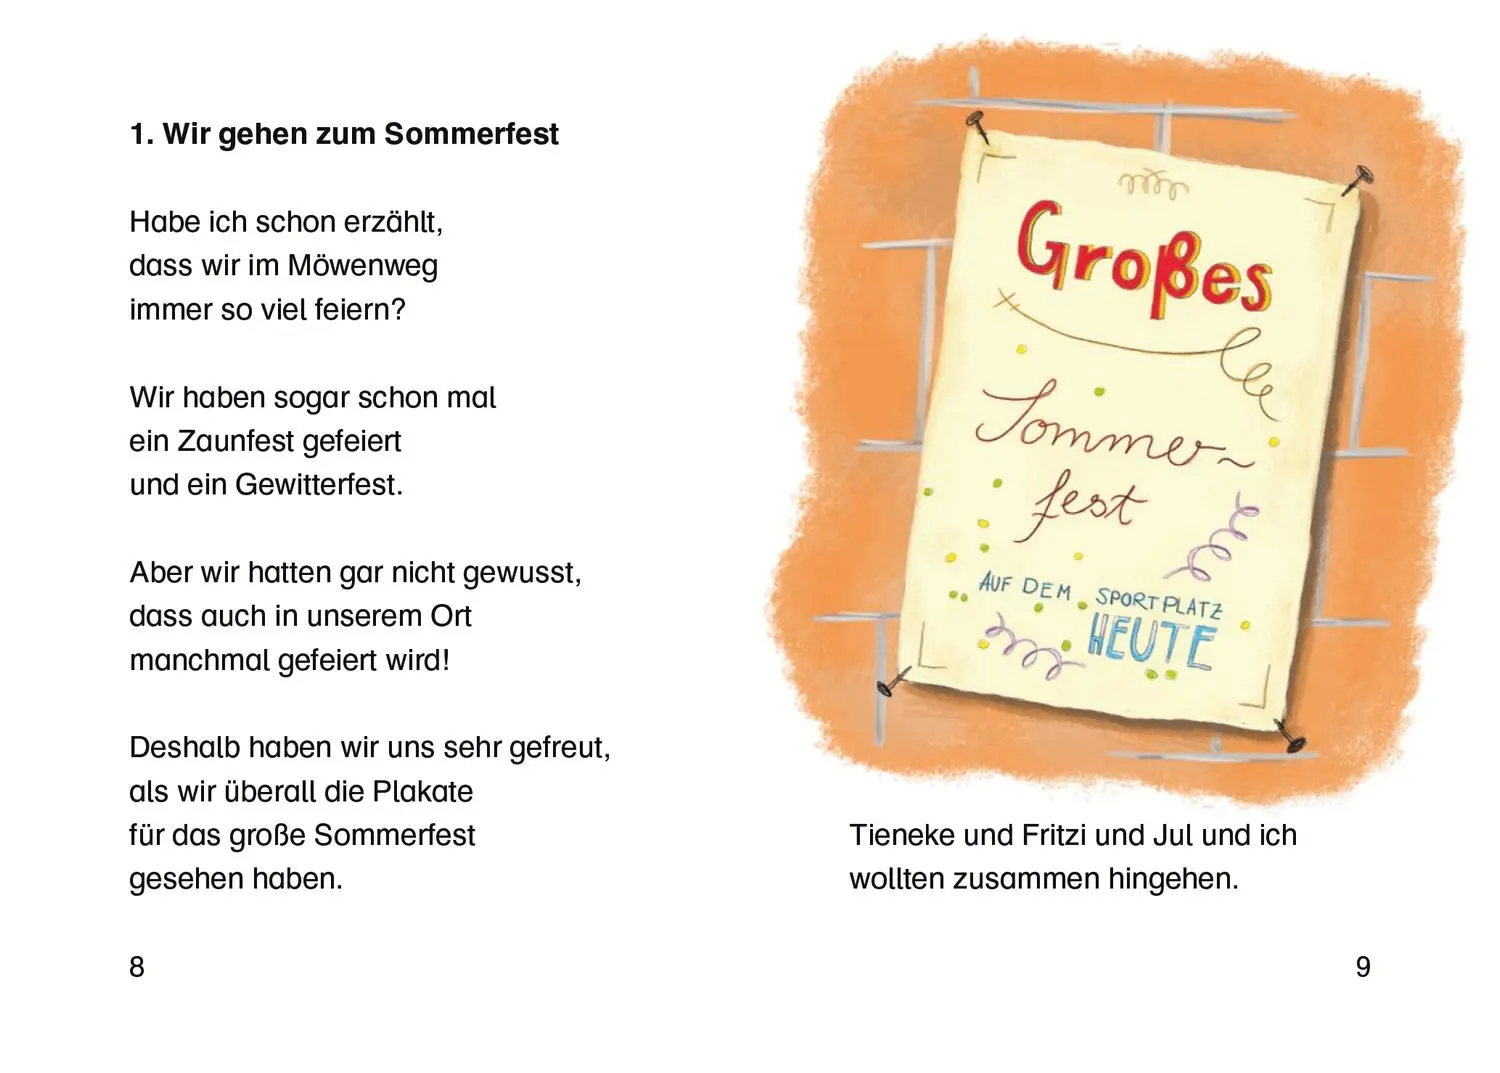 1. Wir gehen zum Sommerfest
Habe ich schon erzählt,
dass wir im Möwenweg
immer so viel feiern?
Wir haben sogar schon mal
ein Zaunfest gefeiert
und ein Gewitterfest.
Aber wir hatten gar nicht gewusst,
dass auch in unserem Ort
manchmal gefeiert wird!
Deshalb haben wir uns sehr gefreut,
als wir überall die Plakate
für das große Sommerfest
gesehen haben.
8
Großes
Sommer-
fest
AUF DEM SPORTPLATZ
HEUTE
Tieneke und Fritzi und Jul und ich
wollten zusammen hingehen.
9